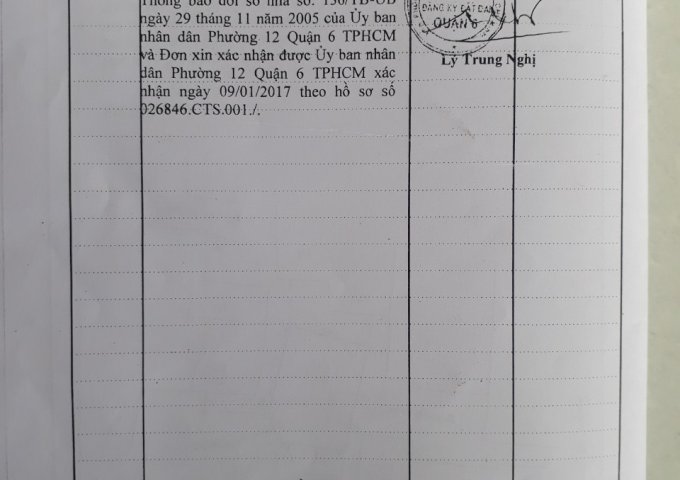 Thông báo đổi số nhà số: 130/TB-UB
ngày 29 tháng 11 năm 2005 của Ủy ban
nhân dân Phường 12 Quận 6 TPHCM
và Đơn xin xác nhận được Ủy ban nhân
dân Phường 12 Quận 6 TPHCM xác
nhận ngày 09/01/2017 theo hồ sơ số
026846.CTS.001./.
ĐĂNG KÝ ĐẤT ĐAI
QUẬN 6
Lý Trung Nghị